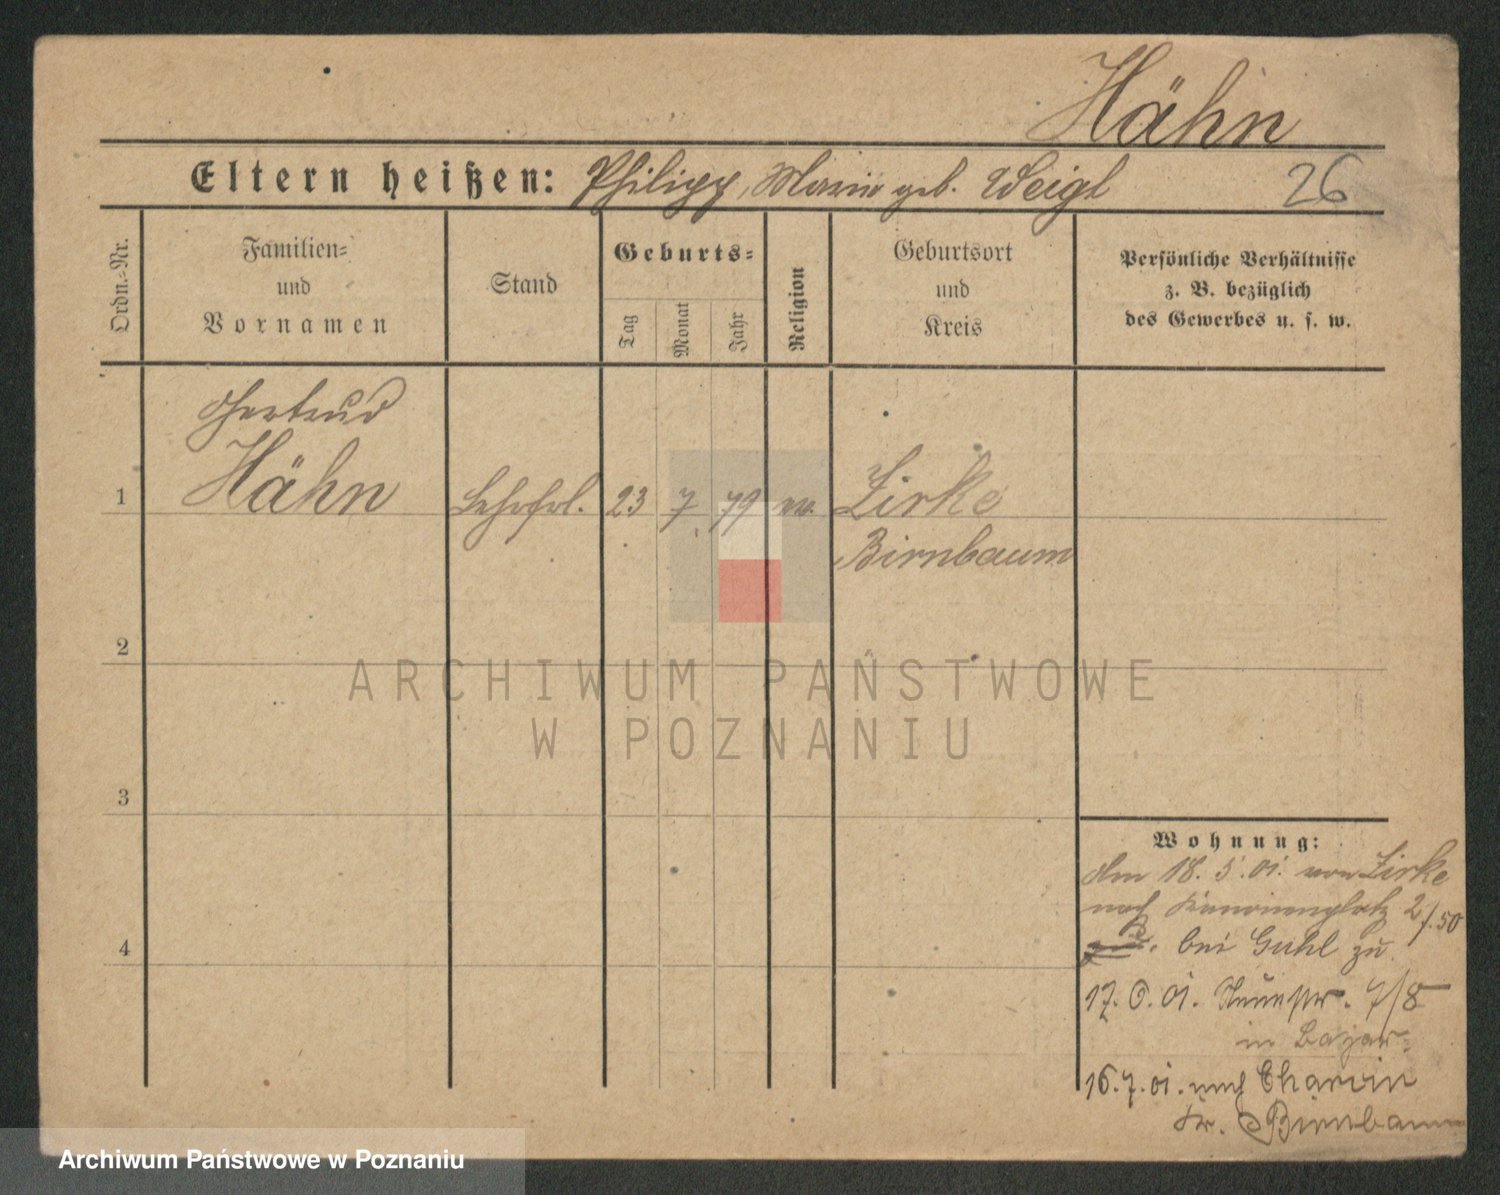 Hähn
Eltern heißen: Philipp, Marie geb. Weigl
26
Ordn.-Nr.
Familien-
und
Vornamen
Stand
Geburts-
Tag
Monat
Jahr
Religion
Geburtsort
und
Kreis
Persönliche Verhältnisse
z. B. bezüglich
des Gewerbes u. s. w.
Gertrud
1 Hähn Lehrfrl. 23 7 79 ev. Zirke
Birnbaum
2
3
4
Wohnung:
Am 18. 5. 01. von Zirke
nach 2/. 50
bei Guhl zu.
17. 6. 01. Neuestr. 7/8
in Bazar.
16. 7. 01. nach Charcin
Kr. Birnbaum
ARCHIWUM PAŃSTWOWE
W POZNANIU
Archiwum Państwowe w Poznaniu